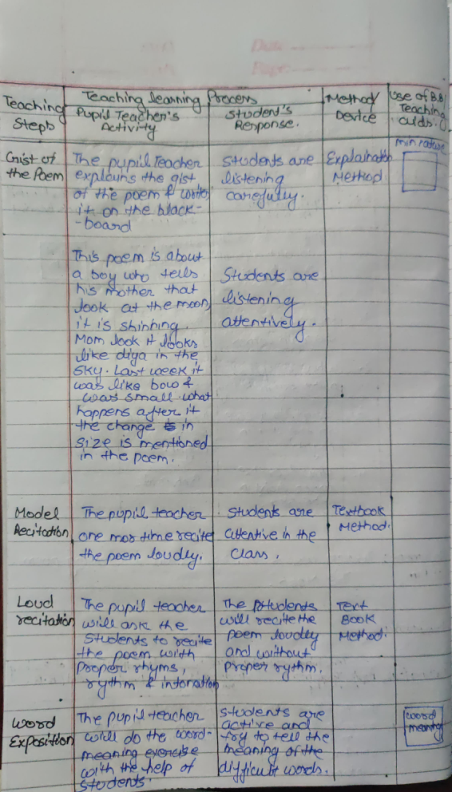 Date
Page
Teaching Steps
Teaching learning Process
Pupil Teacher's Activity
Student's Response.
Method/ Device
Use of B.B/ Teaching aids.
Gist of the Poem
The pupil Teacher
explains the gist
of the poem & writes
it on the black-
-board
Students are
listening
carefully.
Explanation
Method
This poem is about
a boy who tells
his mother that
look at the moon,
it is shinning.
Mom look it looks
like diya in the
sky. Last week it
was like bow &
was small what
happens after it
the change in
size is mentioned
in the poem.
Students are
listening
attentively.
Model
Recitation
The pupil teacher
one mor time recite
the poem loudly.
Students are
attentive in the
class.
Textbook
Method.
Loud
recitation
The pupil teacher
will ask the
students to recite
the poem with
proper rhyms,
rythm & intonation
The students
will recite the
poem loudly
and without
proper rythm.
Text
Book
Method.
Word
Exposition
The pupil teacher
will do the word-
meaning exercise
with the help of
students.
Students are
active and
try to tell the
meaning of the
difficult words.
word
meaning